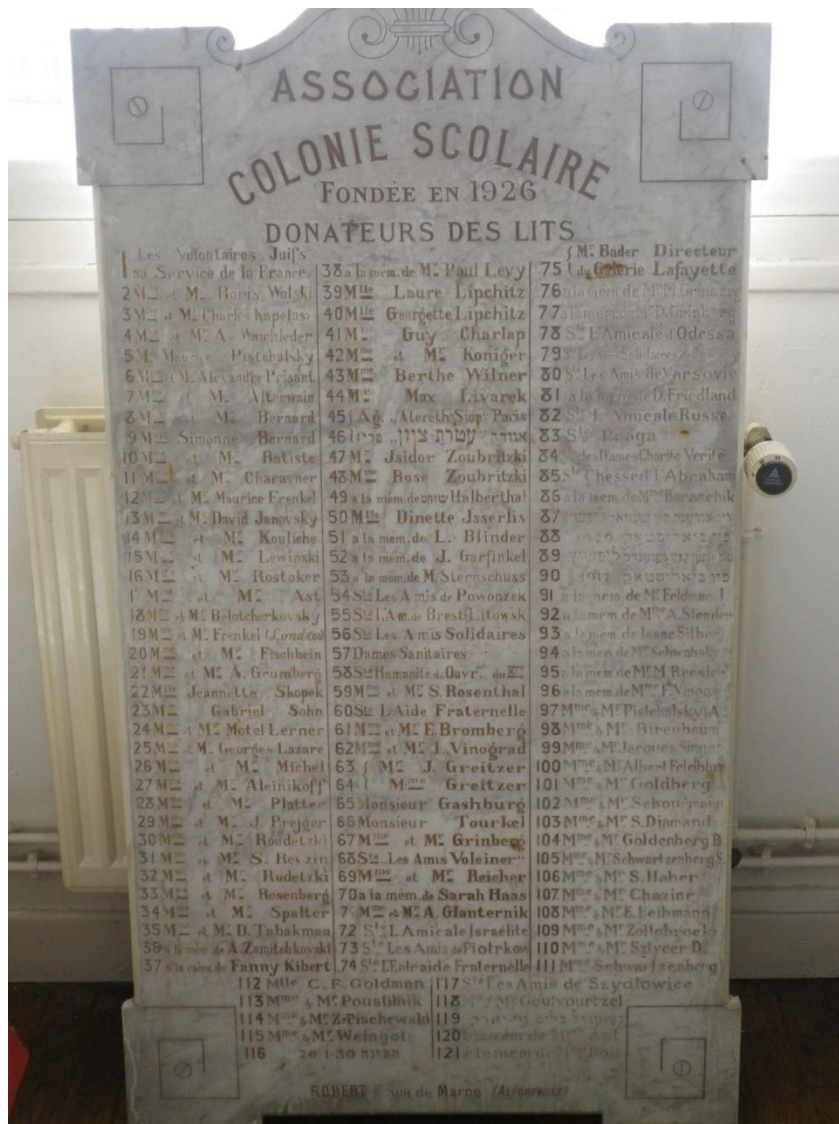 ASSOCIATION
COLONIE SCOLAIRE
FONDÉE EN 1926
DONATEURS DES LITS
1 Les Volontaires Juifs
au Service de la France
2 Mme et Mr Boris Wolski
3 Mme et Mr Charles Kapelusz
4 Mme et Mr A. Waichleder
5 Mr Maurice Pistchalsky
6 Mme et Mr Alexandre Peisant
7 Mme et Mr Alterwain
8 Mme et Mr Bernard
9 Mlle Simonne Bernard
10 Mme et Mr Batiste
11 Mme et Mr Charavner
12 Mme et Mr Maurice Frenkel
13 Mme et Mr David Janovsky
14 Mme et Mr Kouliche
15 Mme et Mr Lewinski
16 Mme et Mr Rostaker
17 Mme et Mr Ast
18 Mme et Mr Belotcherkovsky
19 Mme et Mr Frenkel (Londres)
20 Mme et Mr Fischbein
21 Mme et Mr A. Grumberg
22 Mlle Jeannette Skopek
23 Mr Gabriel Sohn
24 Mme et Mr Motel Lerner
25 Mme et Mr Georges Lazare
26 Mme et Mr Michel
27 Mme et Mr Aleinikoff
28 Mme et Mr Platter
29 Mme et Mr J. Prejger
30 Mme et Mr Roudetzki
31 Mme et Mr S. Rezzin
32 Mme et Mr Rudetzki
33 Mme et Mr Rosenberg
34 Mme et Mr Spalter
35 Mme et Mr D. Tabakman
36 a la mém. de A. Zamitchkovski
37 a la mém. de Fanny Kibert
38 a la mém. de Mr Paul Levy
39 Mlle Laure Lipchitz
40 Mlle Georgette Lipchitz
41 Mr Guy Charlap
42 Mme et Mr Koniger
43 Mme Berthe Wilner
44 Mr Max Livarek
45 Ag. "Atereth-Sion" Paris
46 אגודה "עטרת ציון" פריז
47 Mr Jsidor Zoubritzki
48 Mme Rose Zoubritzki
49 a la mém. de Halberthal
50 Mlle Dinette Jsserlis
51 a la mém. de L. Blinder
52 a la mém. de J. Garfinkel
53 a la mém. de M. Sternschuss
54 Sté Les Amis de Powonzek
55 Sté L'Am. de Brest-Litowsk
56 Sté Les Amis Solidaires
57 Dames Sanitaires
58 Sté Humanité d. Ouvr. du
59 Mme et Mr S. Rosenthal
60 Sté L'Aide Fraternelle
61 Mme et Mr E. Bromberg
62 Mme et Mr L. Vinograd
63 Mr J. Greitzer
64 Mme Greitzer
65 Monsieur Gashburg
66 Monsieur Tourkel
67 Mme et Mr Grinberg
68 Sté "Les Amis Voleiner"
69 Mme et Mr Reicher
70 a la mém. de Sarah Haas
7 Mme et Mr A. Glanternik
72 Sté L'Amicale Israélite
73 Sté Les Amis de Piotrkow
74 Sté L'Entraide Fraternelle
75 Mr Bader Directeur
du Galerie Lafayette
76 a la mém. de Mr M. Grinberg
77 a la mém. de Mr D. Grinberg
78 Sté L'Amicale d'Odessa
79 Sté
80 Sté Les Amis de Varsovie
81 a la mém. de D. Friedland
82 Sté L'Amicale Russe
83 Sté Praga
84 Sté des Dames Charité Vérité
85 Sté Chessed l'Abraham
86 a la mém. de Mme Baranchik
87
88
89
90
91 a la mém. de Mr Feldman J.
92 a la mém. de Mme A. Slender
93 a la mém. de Isaac Silber
94 a la mém. de Mr Schwabsky
95 a la mém. de Mr M. Breslow
96 a la mém. de Mme F. Vinograd
97 Mme & Mr Pistchalsky A.
98 Mme & Mr Birenbaum
99 Mme & Mr Jacques Singer
100 Mme & Mr Albert Feldblum
101 Mme & Mr Goldberg
102 Mme & Mr Schoulmann
103 Mme & Mr S. Diamand
104 Mme & Mr Goldenberg B.
105 Mme & Mr Schwartzenberg S.
106 Mme & Mr S. Haber
107 Mme & Mr Chazine
108 Mme & Mr E. Leibmann
109 Mme & Mr Zoltobroda
110 Mme & Mr Szlycer D.
111 Mme Schwartzenberg
112 Mlle C. F. Goldman
113 Mme & Mr Poustilnik
114 Mme & Mr Z. Pischewski
115 Mme & Mr Weingot
116 חתונה 26-1-30
117 Sté Les Amis de Szydlowiec
118 Mme & Mr Goulvourtzel
119
120 a la mém. de Mme Ast
121 a la mém. de
ROBERT 7 Rue de Marne (Alfortville)